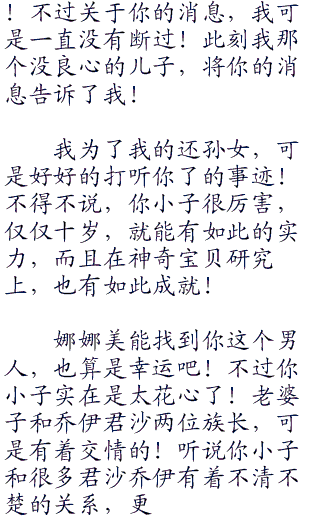 ！不过关于你的消息，我可
是一直没有断过！此刻我那
个没良心的儿子，将你的消
息告诉了我！
我为了我的还孙女，可
是好好的打听你了的事迹！
不得不说，你小子很厉害，
仅仅十岁，就能有如此的实
力，而且在神奇宝贝研究
上，也有如此成就！
娜娜美能找到你这个男
人，也算是幸运吧！不过你
小子实在是太花心了！老婆
子和乔伊君沙两位族长，可
是有着交情的！听说你小子
和很多君沙乔伊有着不清不
楚的关系，更